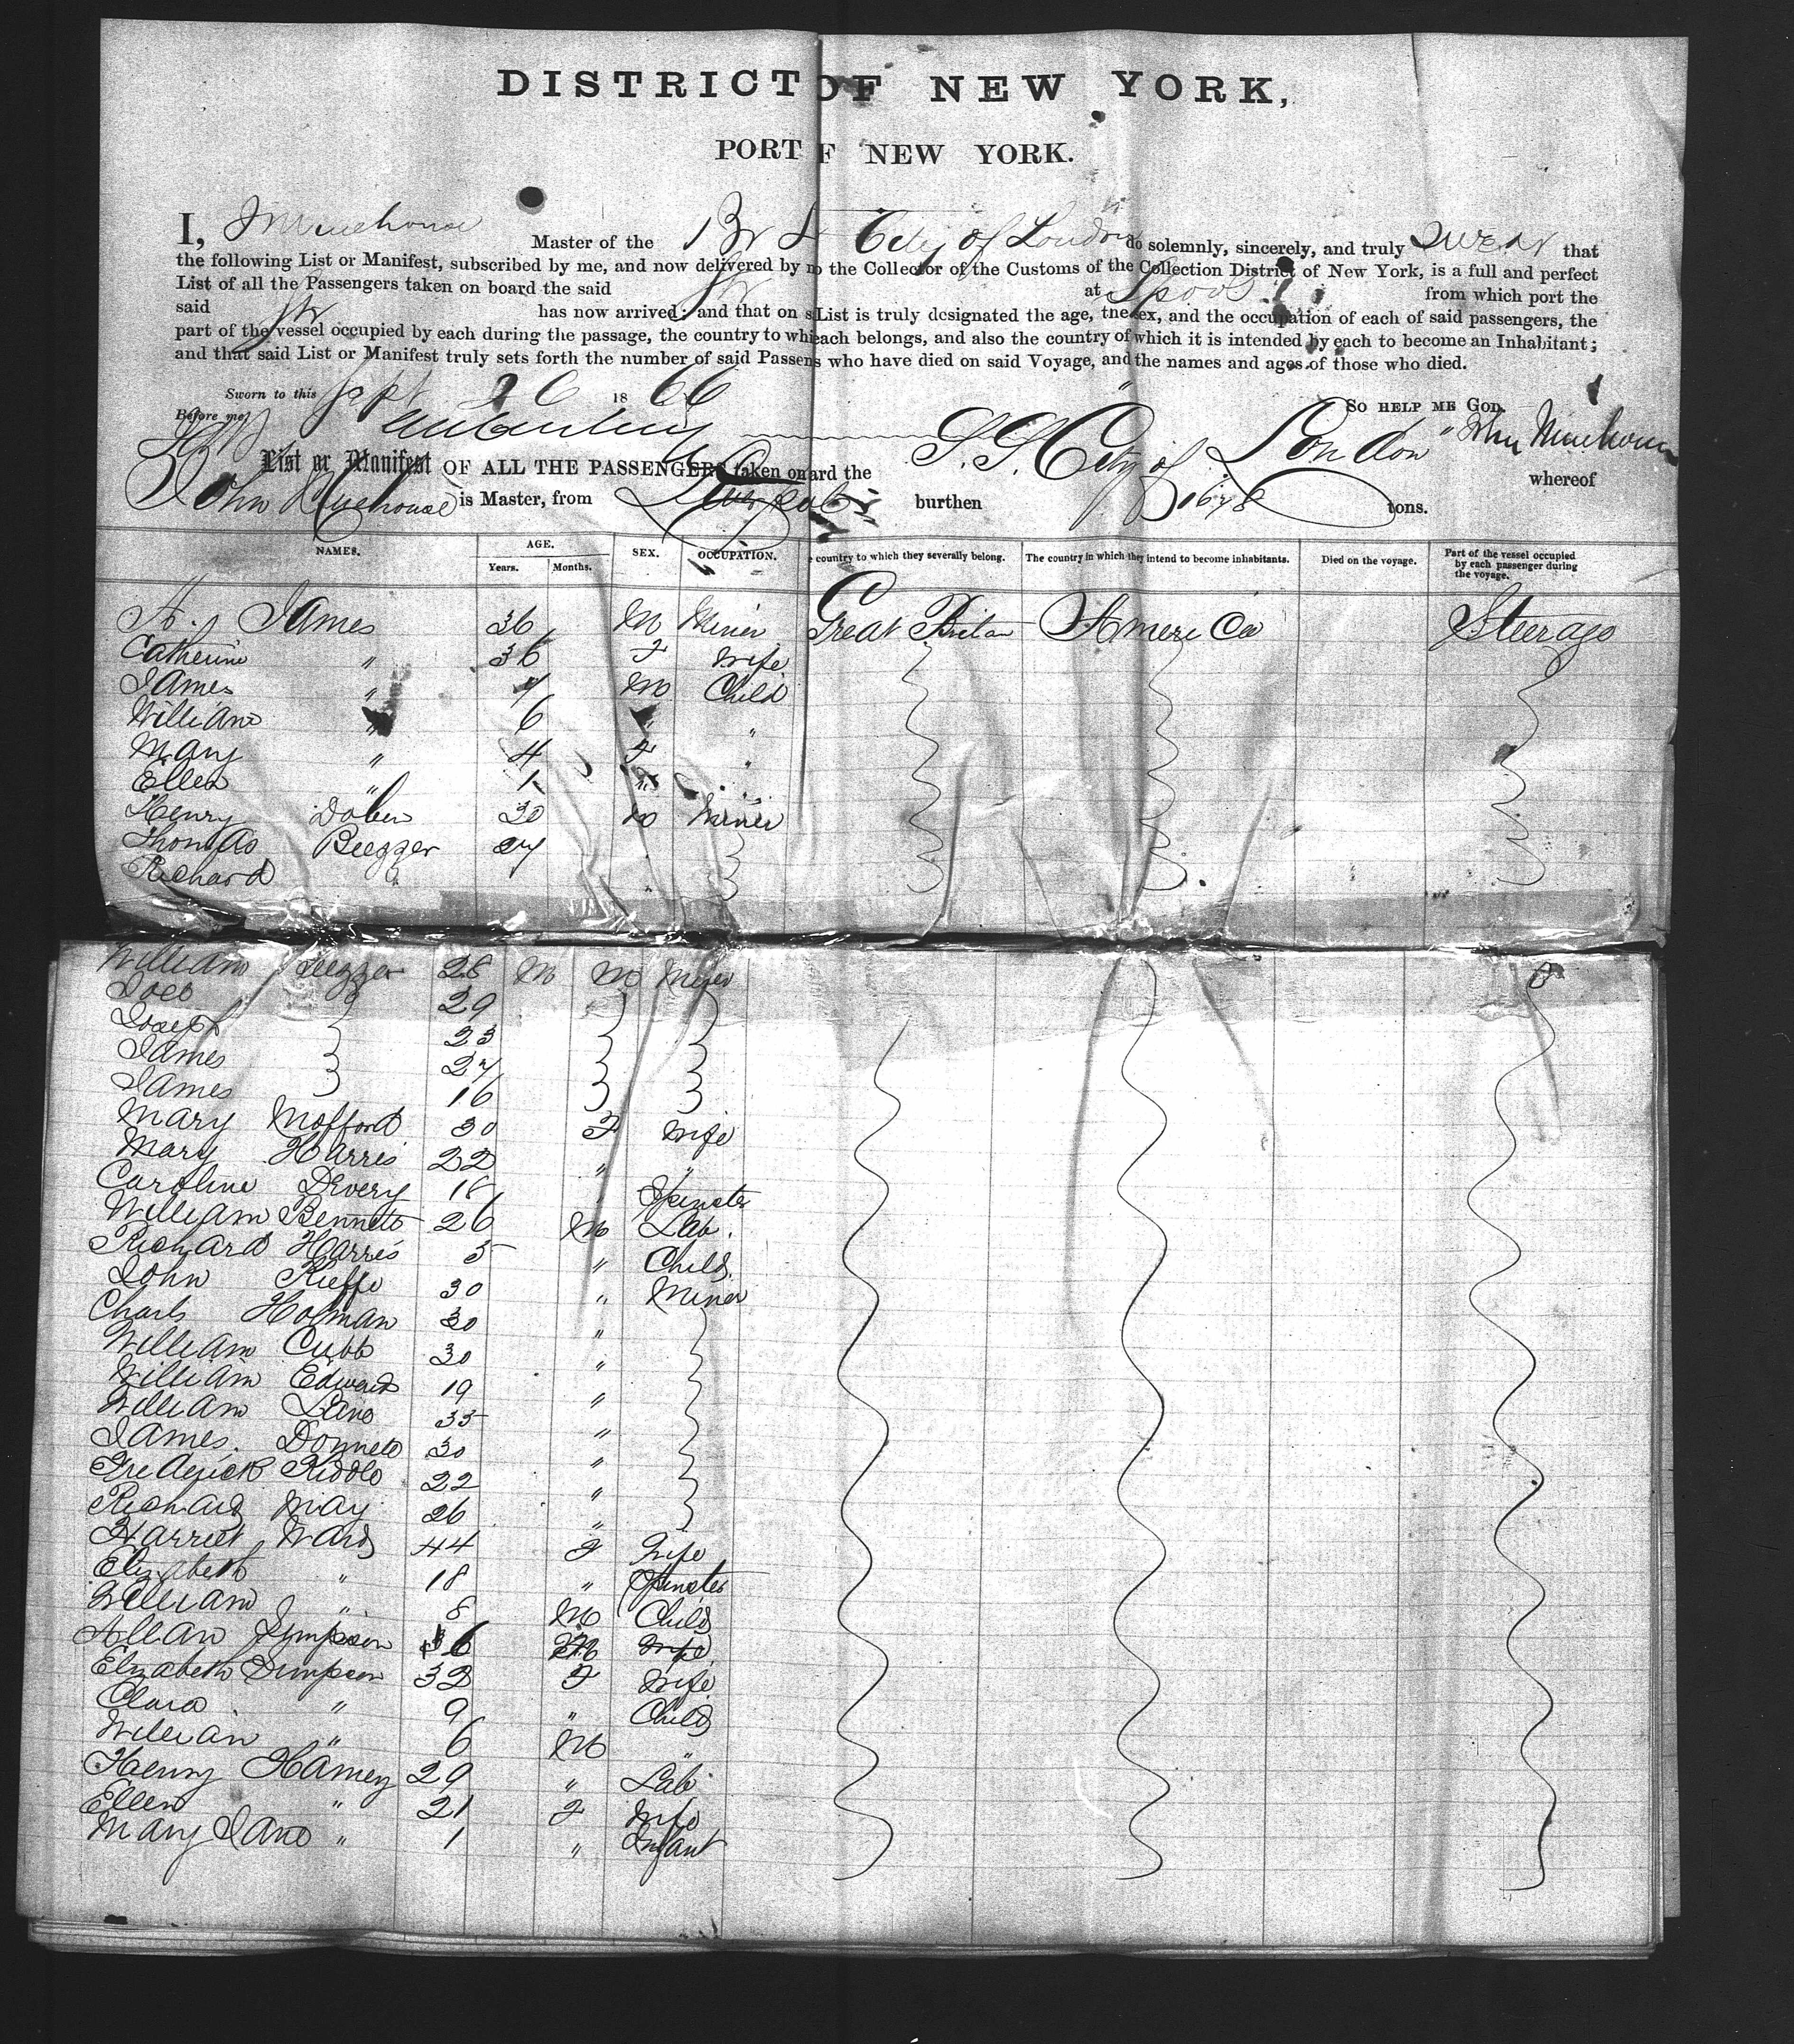 DISTRICT OF NEW YORK,
PORT F NEW YORK.
I, Master of the Br S City of London do solemnly, sincerely, and truly swear that
the following List or Manifest, subscribed by me, and now delivered by m the Collector of the Customs of the Collection District of New York, is a full and perfect
List of all the Passengers taken on board the said Str at Lpool from which port the
said Str has now arrived; and that on s List is truly designated the age, the sex, and the occupation of each of said passengers, the
part of the vessel occupied by each during the passage, the country to which each belongs, and also the country of which it is intended by each to become an Inhabitant;
and that said List or Manifest truly sets forth the number of said Passens who have died on said Voyage, and the names and ages of those who died.
Sworn to this Sept 26 1866 SO HELP ME GOD.
Before me, John
List or Manifest OF ALL THE PASSENGERS taken on ard the S.S. City of London whereof
John is Master, from Liverpool burthen tons.
NAMES. AGE. Years. Months. SEX. OCCUPATION. e country to which they severally belong. The country in which they intend to become inhabitants. Died on the voyage. Part of the vessel occupied by each passenger during the voyage.
A. James 36 M Miner Great Britan America Steerage
Catherine " 36 F Wife
James " 7 M Child
William " 6 " "
Mary " 4 F "
Ellen " 1 " "
Henry Daben 30 M Miner
Thomas Beegzer 27
Richard "
William Beegzer 28 M M Miner
29
Joseph 23
James 27
James 16
Mary Mofford 30 F Wife
Mary Harris 22 " "
Caroline Divery 18 " Spinster
William Bennett 26 M Lab.
Richard Harris 5 " Child
John Kieffe 30 " Miner
Charls Holman 30 "
William Cubb 30 "
William Edwards 19 "
William Lane 35 "
James Donneto 30 "
Frederick Riddle 22 "
Richard May 26 "
Harriet Ward 44 F Wife
Elizabeth " 18 " Spinster
William " 8 M Child
Allan Simpson 36 M Wife
Elizabeth Simpson 32 F Wife
Clara " 9 " Child
William " 6 M "
Henry Hamey 29 " Lab
Ellen " 21 F Wife
Mary Jane " 1 " Infant